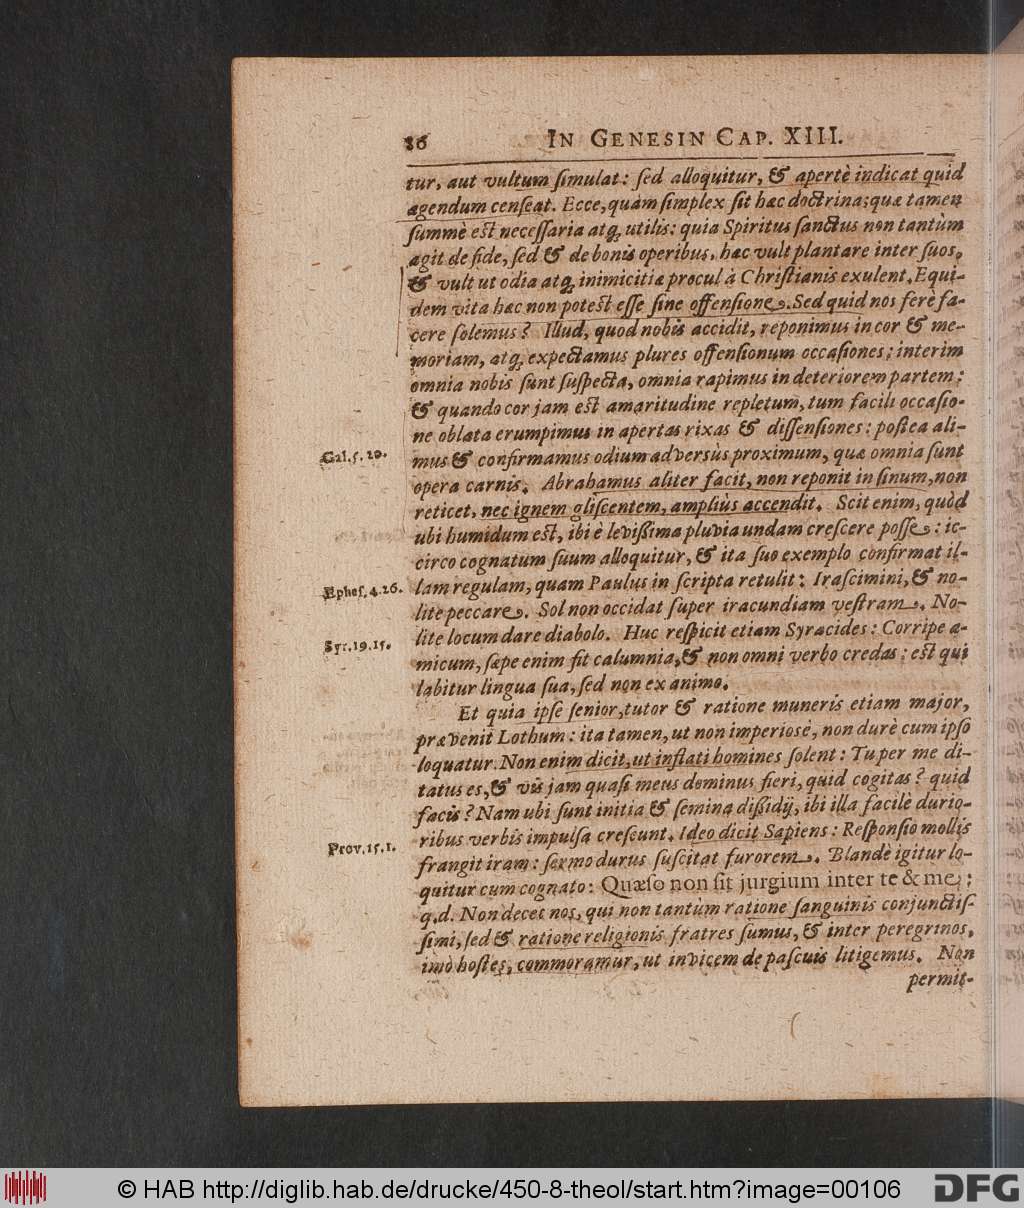 86 IN GENESIN CAP. XIII.
tur, aut vultum ſimulat: ſed alloquitur, & apertè indicat quid
agendum cenſeat. Ecce, quàm ſimplex ſit hæc doctrina; quæ tamen
ſummè eſt neceſſaria atq; utilis: quia Spiritus ſanctus non tantùm
agit de fide, ſed & de bonis operibus, hæc vult plantare inter ſuos,
& vult ut odia atq; inimicitiæ procul à Chriſtianis exulent. Equi-
dem vita hæc non poteſt eſſe ſine offenſione. Sed quid nos ferè fa-
cere ſolemus? Illud, quod nobis accidit, reponimus in cor & me-
moriam, atq; expectamus plures offenſionum occaſiones; interim
omnia nobis ſunt ſuſpecta, omnia rapimus in deteriorem partem:
& quando cor jam eſt amaritudine repletum, tum facili occaſio-
ne oblata erumpimus in apertas rixas & diſſenſiones: poſtea ali-
Gal. 5. 20.
mus & confirmamus odium adverſùs proximum, quæ omnia ſunt
opera carnis. Abrahamus aliter facit, non reponit in ſinum, non
reticet, nec ignem gliſcentem, ampliùs accendit. Scit enim, quòd
ubi humidum eſt, ibi è leviſſima pluvia undam creſcere poſſe: ic-
circo cognatum ſuum alloquitur, & ita ſuo exemplo confirmat il-
Epheſ. 4. 26.
lam regulam, quam Paulus in ſcripta retulit: Iraſcimini, & no-
lite peccare. Sol non occidat ſuper iracundiam veſtram. No-
lite locum dare diabolo. Huc reſpicit etiam Syracides: Corripe a-
Syr. 19. 15.
micum, ſæpe enim fit calumnia, & non omni verbo credas: eſt qui
labitur lingua ſua, ſed non ex animo.
Et quia ipſe ſenior, tutor & ratione muneris etiam major,
prævenit Lothum: ita tamen, ut non imperiosè, non durè cum ipſo
loquatur. Non enim dicit, ut inflati homines ſolent: Tu per me di-
tatus es, & vis jam quaſi meus dominus fieri, quid cogitas? quid
facis? Nam ubi ſunt initia & ſemina diſſidij, ibi illa facilè durio-
ribus verbis impulſa creſcunt. Ideo dicit Sapiens: Reſponſio mollis
Prov. 15. 1.
frangit iram: ſermo durus ſuſcitat furorem. Blandè igitur lo-
quitur cum cognato: Quæſo non ſit jurgium inter te & me;
q.d. Non decet nos, qui non tantùm ratione ſanguinis conjunctiſ-
ſimi, ſed & ratione religionis fratres ſumus, & inter peregrinos,
imò hoſtes, commoramur, ut invicem de paſcuis litigemus. Non
permit-
© HAB http://diglib.hab.de/drucke/450-8-theol/start.htm?image=00106
DFG